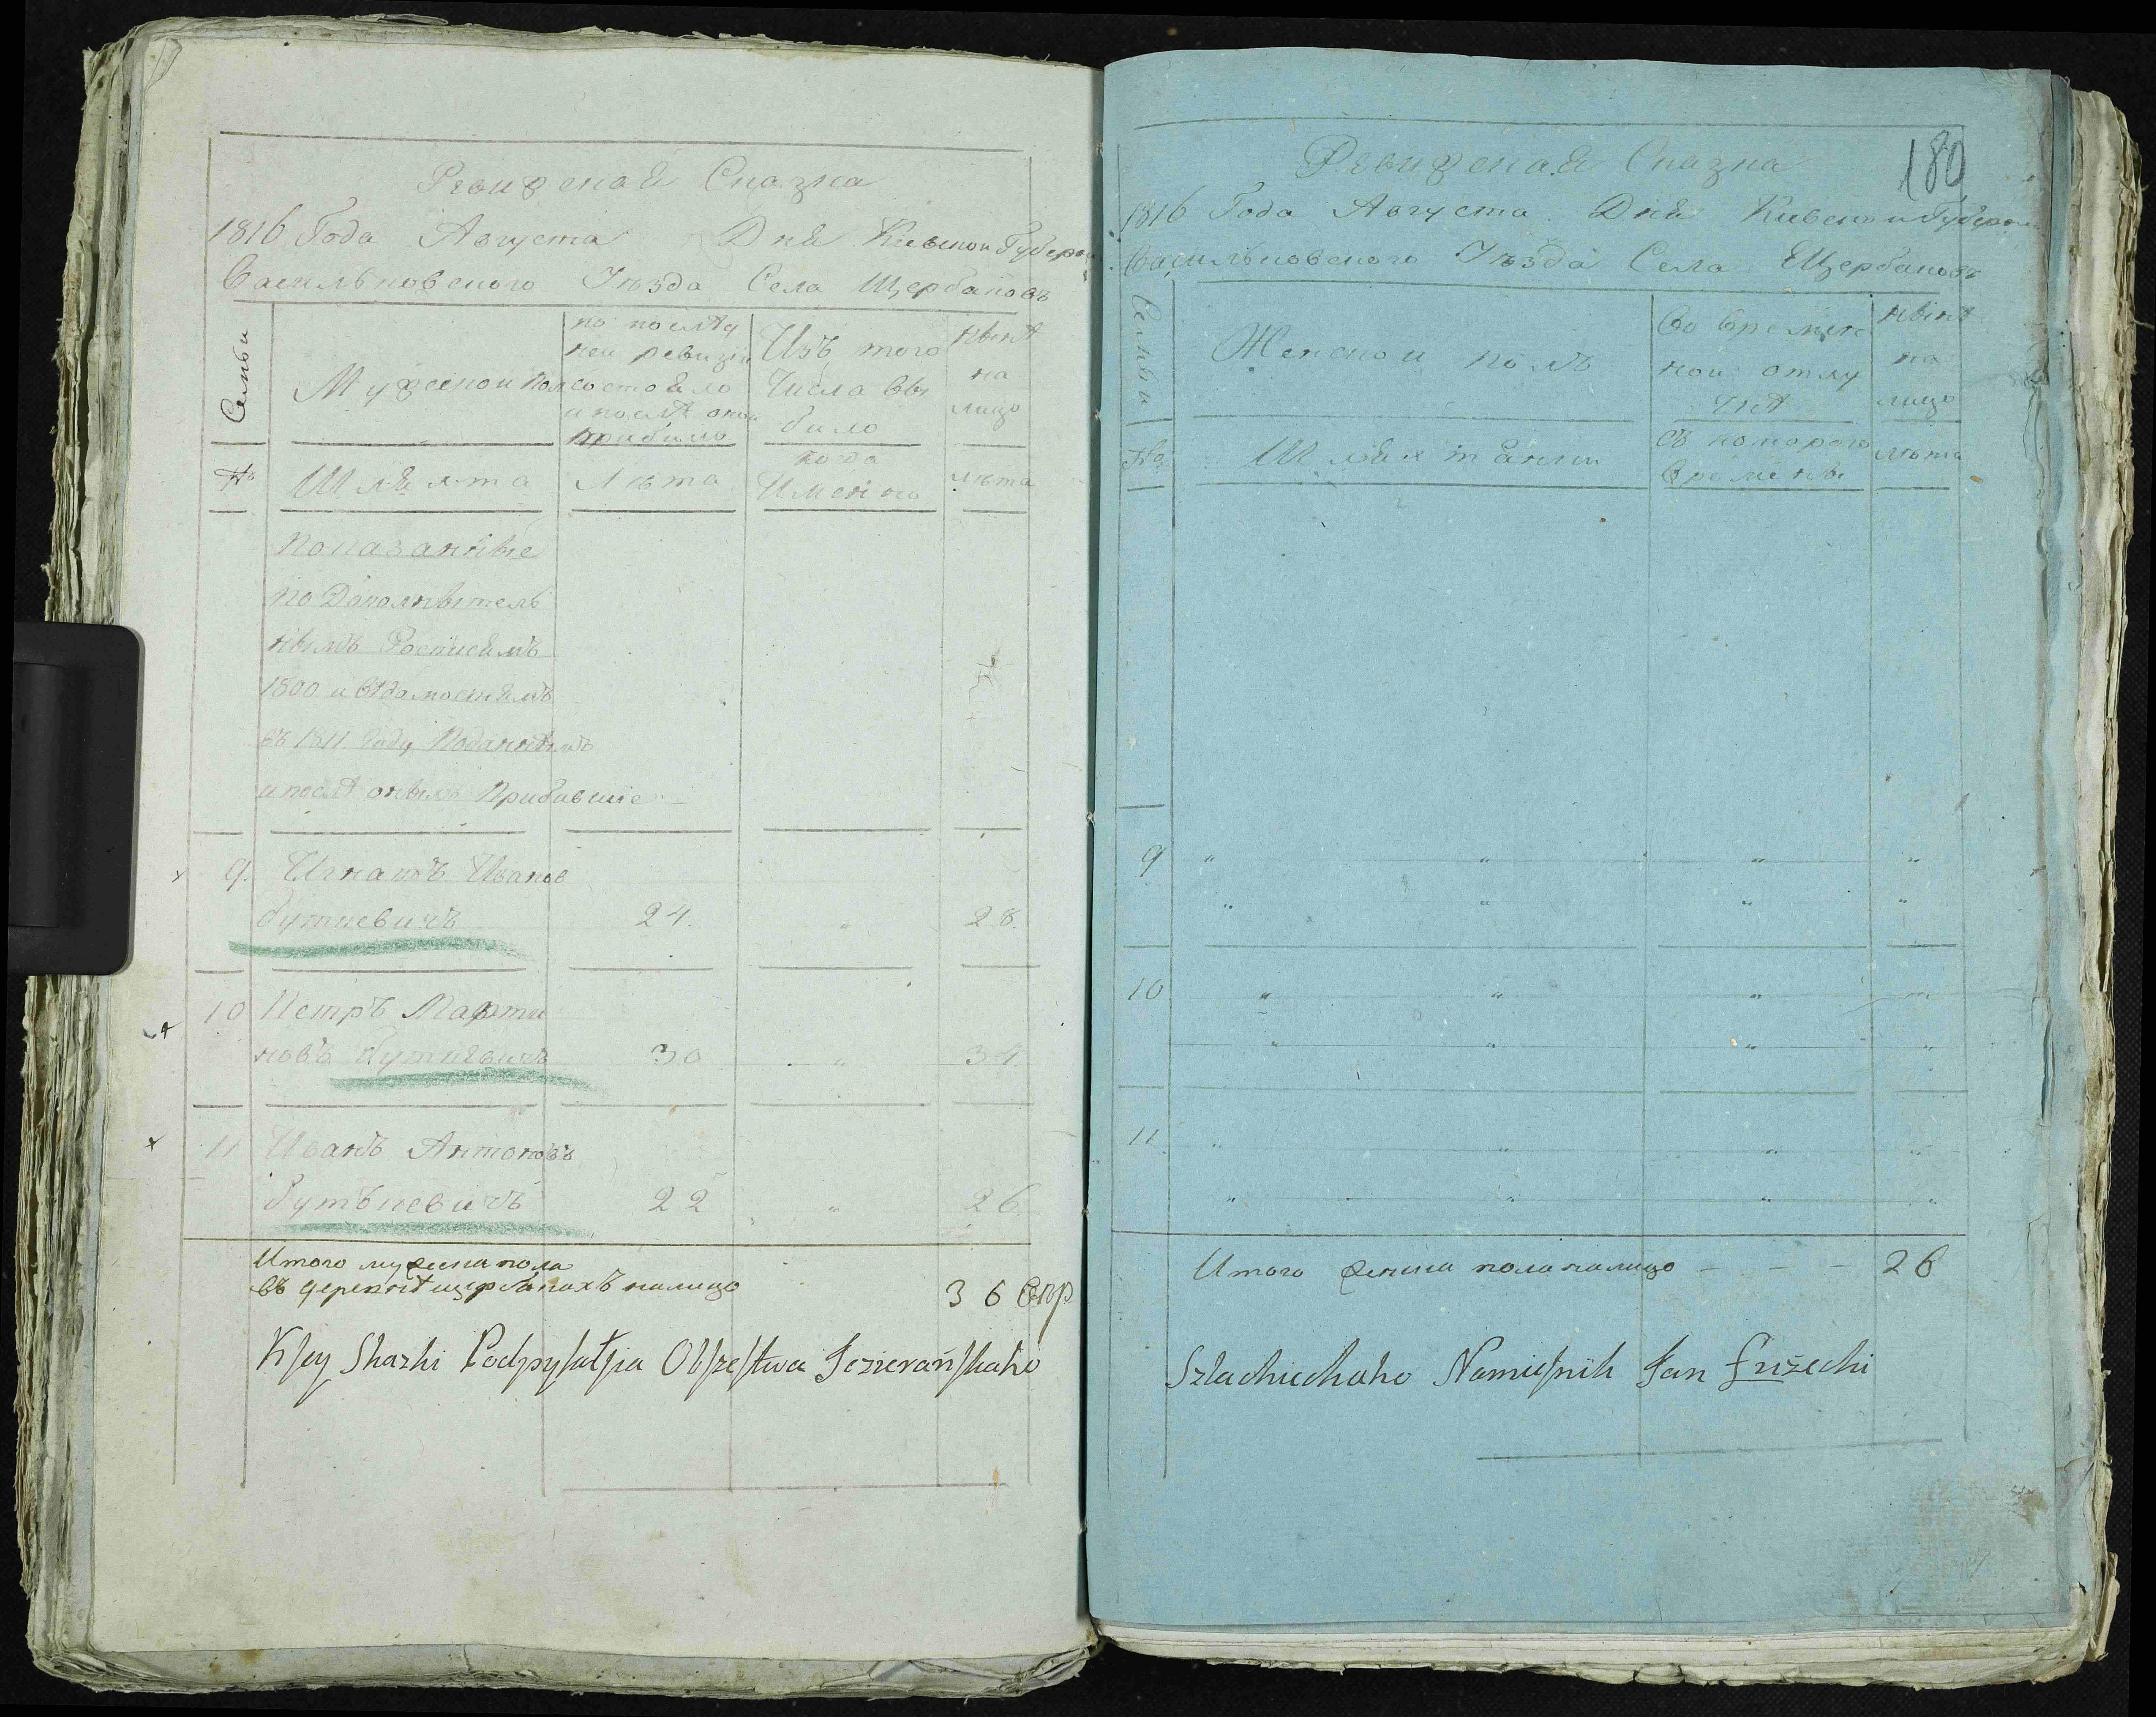 Ревизская Сказка
1816 Года Августа Дня Киевской Губерни
Васильковского Уезда Села Щербановъ
Семьи
Мужеской пол
по послѣд
ней ревизіи
состояло
и послѣ оной
прибыло
Изъ того
Числа вы
было
нынѣ
на
лицо
№
Шляхта
Лѣта
когда
Имянно
лѣта
Показанные
по Дополнытель
нымъ Росписямъ
1800 и вѣдомостямъ
въ 1811 Году Поданнымъ
и послѣ онымъ Прибывшіе
9. Игнатъ Иванов
Буткевичъ 24. " 28.
10 Петръ Марти
новъ Буткевичъ 30 " 34.
11 Иванъ Антоновъ
Бутъкевичъ 22 " 26.
Итого мужеска пола
въ деревнѣ щербанахъ налицо 36
K sey Skazki Podpysałsia Obszestwa Jezierańskaho
180
Ревизская Сказка
1816 Года Августа Дня Киевской Губерни
Васильковского Уѣзда Села Щербановъ
Семьи
Женской полъ
Во времен
ной отлу
чкѣ
нынѣ
на
лицо
№
Шляхтянки
Съ которого
Времены
лѣта
9 " " " "
" " " "
10 " " " "
" " " "
11 " " " "
" " " "
Итого женска пола налицо - - - 26
Szlachieckaho Namiesnik Jan